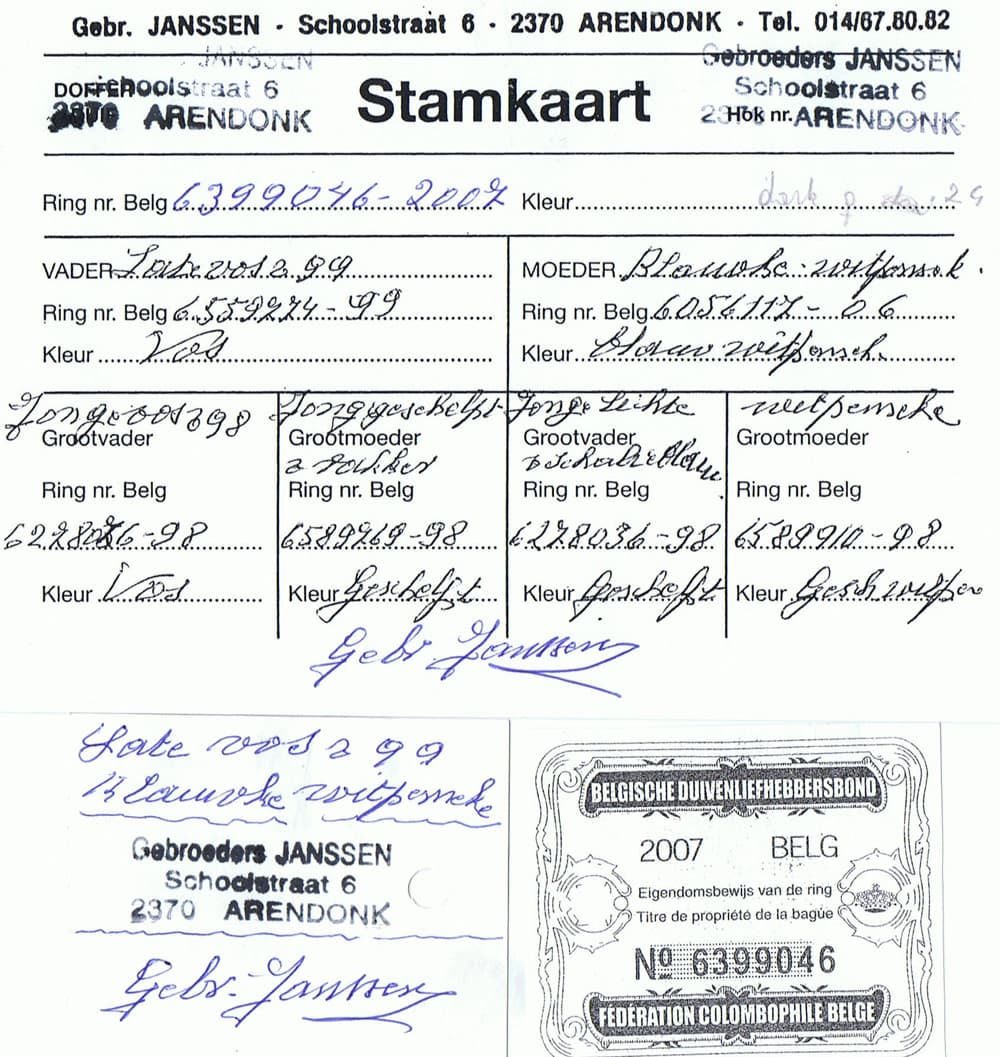 Gebr. JANSSEN · Schoolstraat 6 · 2370 ARENDONK · Tel. 014/67.80.82
JANSSEN Gebroeders JANSSEN
DOFFER Schoolstraat 6 Stamkaart Schoolstraat 6
2370 ARENDONK Hok nr. ARENDONK
Ring nr. Belg 6399046-2007 Kleur
VADER Late vos a 99 MOEDER Blauwke witpensk.
Ring nr. Belg 6559274-99 Ring nr. Belg 6056117-06
Kleur Vos Kleur Blauw witpensch.
Jonge vos a 98 Jong geschelpt Jonge Lichte witpenseke
Grootvader Grootmoeder Grootvader Grootmoeder
Ring nr. Belg Ring nr. Belg Ring nr. Belg Ring nr. Belg
6278036-98 6589969-98 6278036-98 6589910-98
Kleur Vos Kleur Geschelpt Kleur Geschelpt Kleur Gesch witpen
Gebr. Janssen
Late vos a 99
Blauwke witpenseke
Gebroeders JANSSEN
Schoolstraat 6
2370 ARENDONK
Gebr. Janssen
BELGISCHE DUIVENLIEFHEBBERSBOND
2007 BELG
Eigendomsbewijs van de ring
Titre de propriété de la bague
Nº 6399046
FEDERATION COLOMBOPHILE BELGE